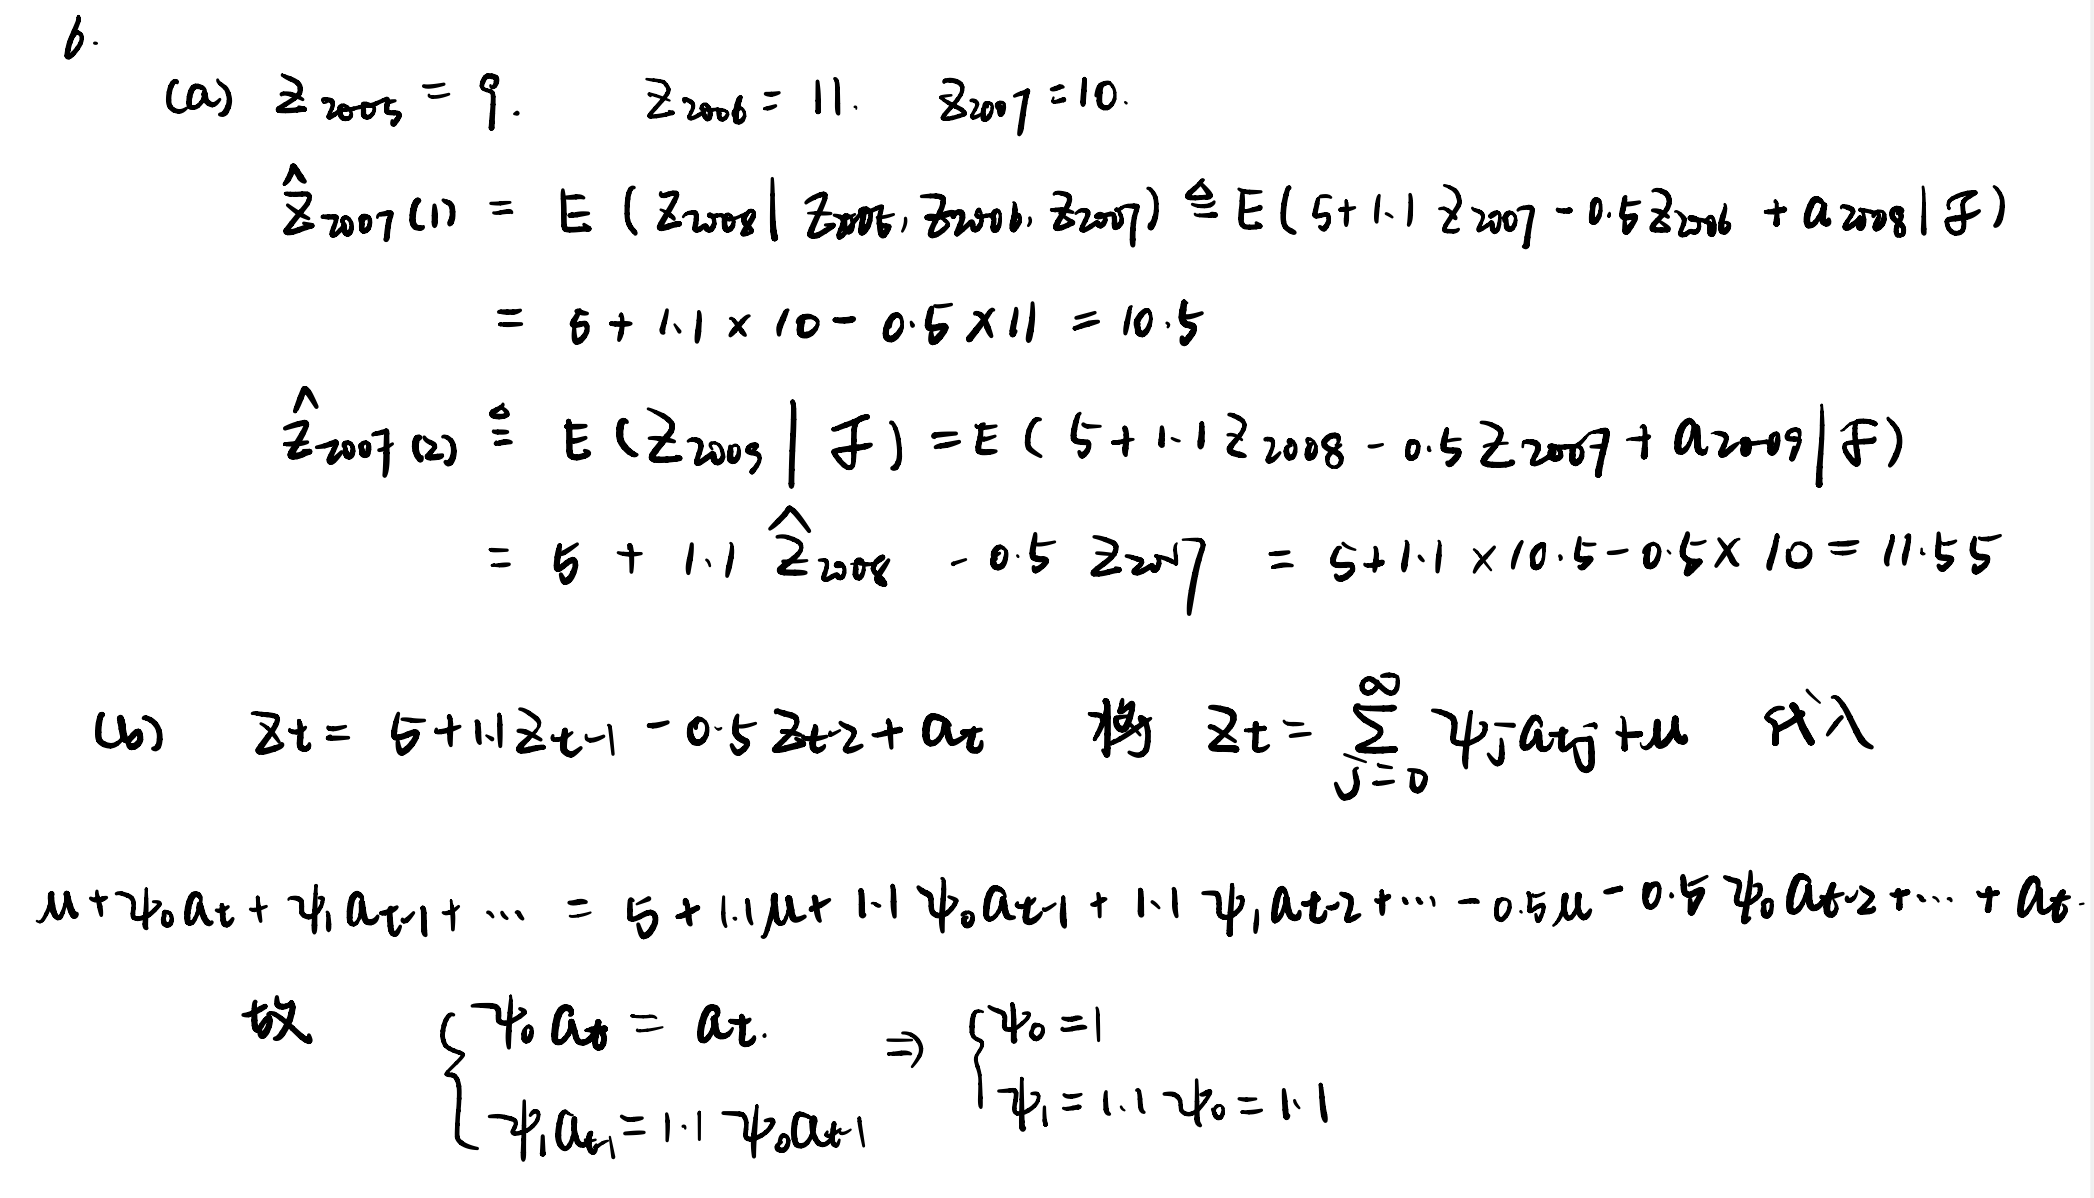 6.
(a) Z₂₀₀₅ = 9. Z₂₀₀₆ = 11. Z₂₀₀₇ = 10.
Ẑ₂₀₀₇(1) = E(Z₂₀₀₈ | Z₂₀₀₅, Z₂₀₀₆, Z₂₀₀₇) ≜ E(5 + 1.1 Z₂₀₀₇ - 0.5 Z₂₀₀₆ + a₂₀₀₈ | ℱ)
= 5 + 1.1 × 10 - 0.5 × 11 = 10.5
Ẑ₂₀₀₇(2) ≜ E(Z₂₀₀₉ | ℱ) = E(5 + 1.1 Z₂₀₀₈ - 0.5 Z₂₀₀₇ + a₂₀₀₉ | ℱ)
= 5 + 1.1 Ẑ₂₀₀₈ - 0.5 Z₂₀₀₇ = 5 + 1.1 × 10.5 - 0.5 × 10 = 11.55
(b) Z_t = 5 + 1.1 Z_{t-1} - 0.5 Z_{t-2} + a_t 将 Z_t = ∑_{j=0}^{∞} ψ_j a_{t-j} + μ 代入
μ + ψ₀ a_t + ψ₁ a_{t-1} + ⋯ = 5 + 1.1 μ + 1.1 ψ₀ a_{t-1} + 1.1 ψ₁ a_{t-2} + ⋯ - 0.5 μ - 0.5 ψ₀ a_{t-2} + ⋯ + a_t.
故 { ψ₀ a_t = a_t. ⇒ { ψ₀ = 1
ψ₁ a_{t-1} = 1.1 ψ₀ a_{t-1} ψ₁ = 1.1 ψ₀ = 1.1